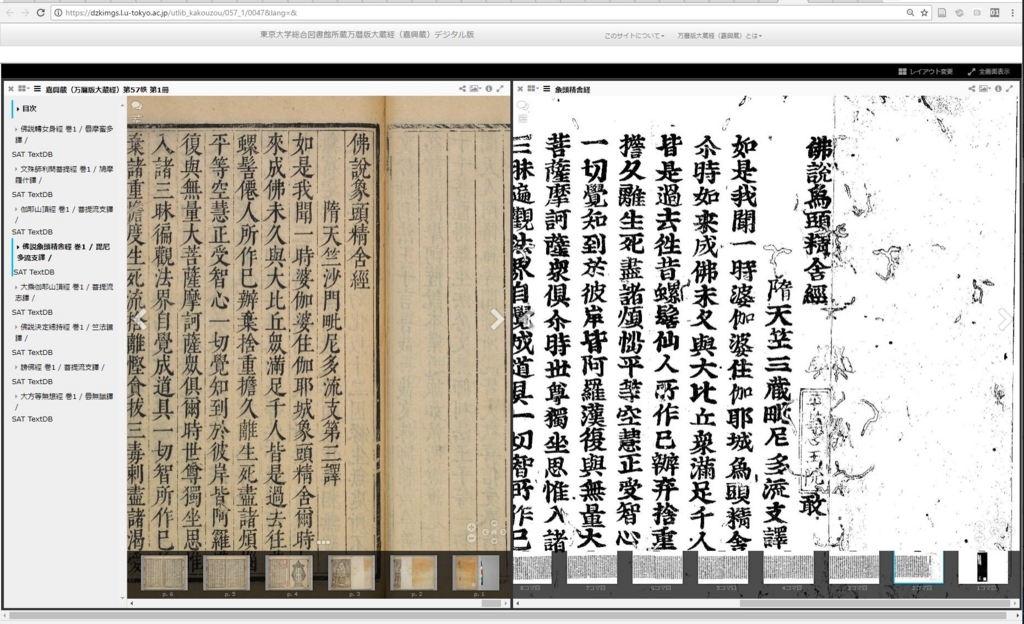 https://dzkimgs.l.u-tokyo.ac.jp/utlib_kakouzou/057_1/0047&lang=&
東京大学総合図書館所蔵万暦版大蔵経（嘉興蔵）デジタル版
このサイトについて
万暦版大蔵経（嘉興蔵）とは
レイアウト変更
全画面表示
嘉興蔵（万暦版大蔵経）第57帙 第1冊
目次
佛説轉女身經 巻1 / 曇摩蜜多譯 /
SAT TextDB
文殊師利問菩提經 巻1 / 鳩摩羅什譯 /
SAT TextDB
伽耶山頂經 巻1 / 菩提流支譯 /
SAT TextDB
佛説象頭精舍經 巻1 / 毘尼多流支譯 /
SAT TextDB
大乘伽耶山頂經 巻1 / 菩提流志譯 /
SAT TextDB
佛説決定總持經 巻1 / 竺法護譯 /
SAT TextDB
謗佛經 巻1 / 菩提流支譯 /
SAT TextDB
大方等無想經 巻1 / 曇無讖譯 /
SAT TextDB
佛說象頭精舍經
隋天竺沙門毗尼多流支第三譯
如是我聞一時婆伽婆住伽耶城象頭精舍爾時
來成佛未久與大比丘眾滿足千人皆是過去往
螺髻僊人所作已辦棄捨重擔久離生死盡諸煩
平等空慧正受智心一切覺知到於彼岸皆阿羅
復與無量大菩薩摩訶薩眾俱爾時世尊獨坐思惟
入諸三昧徧觀法界自覺成道具一切智所作已
棄諸重擔度生死流捨離慳貪拔三毒刺盡諸渴愛
p. 6
p. 5
p. 4
p. 3
p. 2
p. 1
象頭精舍經
佛說象頭精舍經 敢
隋天竺三藏毗尼多流支譯
如是我聞一時婆伽婆住伽耶城象頭精舍
尒時如來成佛未久與大比丘衆滿足千人
皆是過去徃昔螺髻仙人所作已辦弃捨重
擔久離生死盡諸煩惱平等空慧正受智心
一切覺知到於彼岸皆阿羅漢復與無量大
菩薩摩訶薩衆俱尒時世尊獨坐思惟入諸
三昧遍觀法界自覺成道具一切智所作已